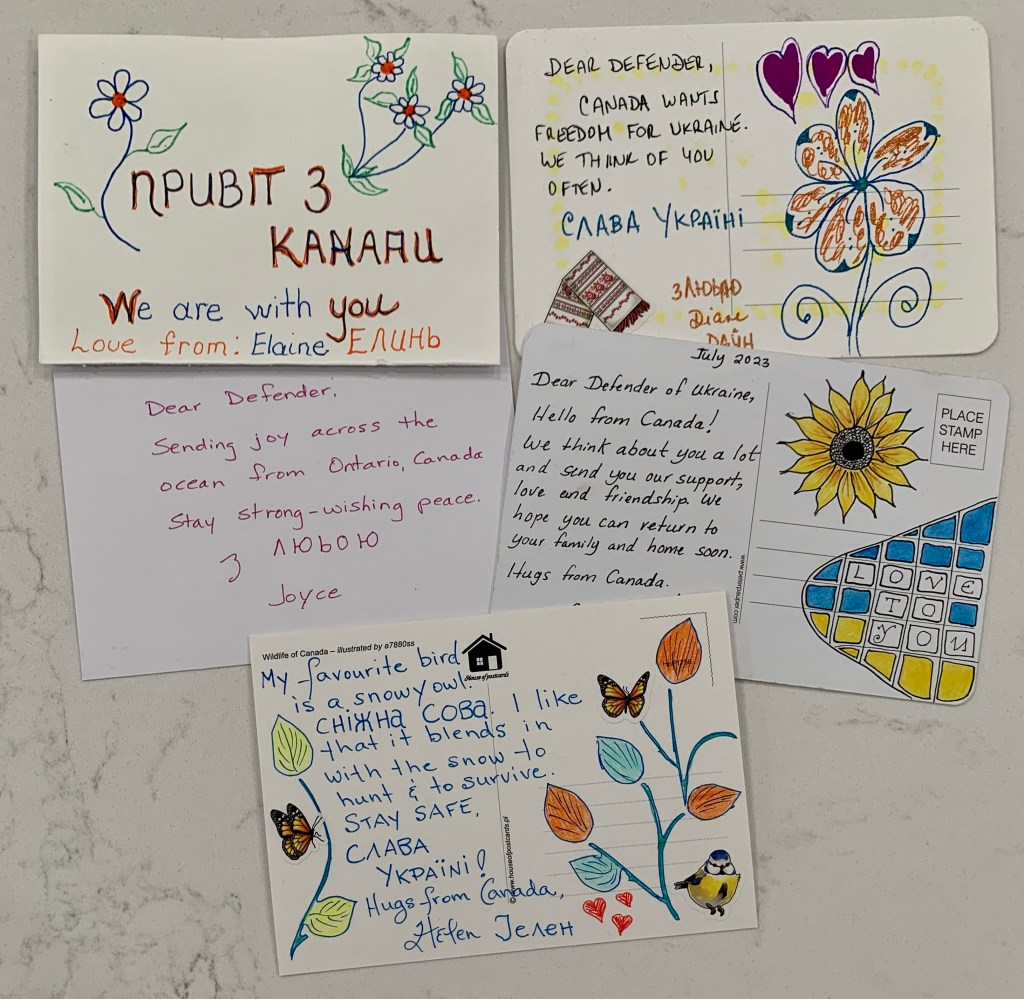 ПРИВІТ З
КАНАДИ
We are with you
Love from: Elaine ЕЛИНЬ
DEAR DEFENDER,
CANADA WANTS
FREEDOM FOR UKRAINE.
WE THINK OF YOU
OFTEN.
СЛАВА УКРАЇНІ
З ЛЮБЬЮ
Diane
ДАЙН
Dear Defender.
Sending joy across the
ocean from Ontario, Canada
Stay strong-wishing peace.
З ЛЮБОЮ
Joyce
July 2023
Dear Defender of Ukraine,
Hello from Canada!
We think about you a lot
and send you our support,
love and friendship. We
hope you can return to
your family and home soon.
Hugs from Canada.
www.peterpauper.com
PLACE
STAMP
HERE
LOVE
TO
YOU
Wildlife of Canada – illustrated by a7880ss
House of postcards
My favourite bird
is a snowy owl.
СНІЖНА СОВА. I like
that it blends in
with the snow to
hunt & to survive.
STAY SAFE,
СЛАВА
УКРАЇНІ!
Hugs from Canada,
Helen Гелен
©www.houseofpostcards.pl